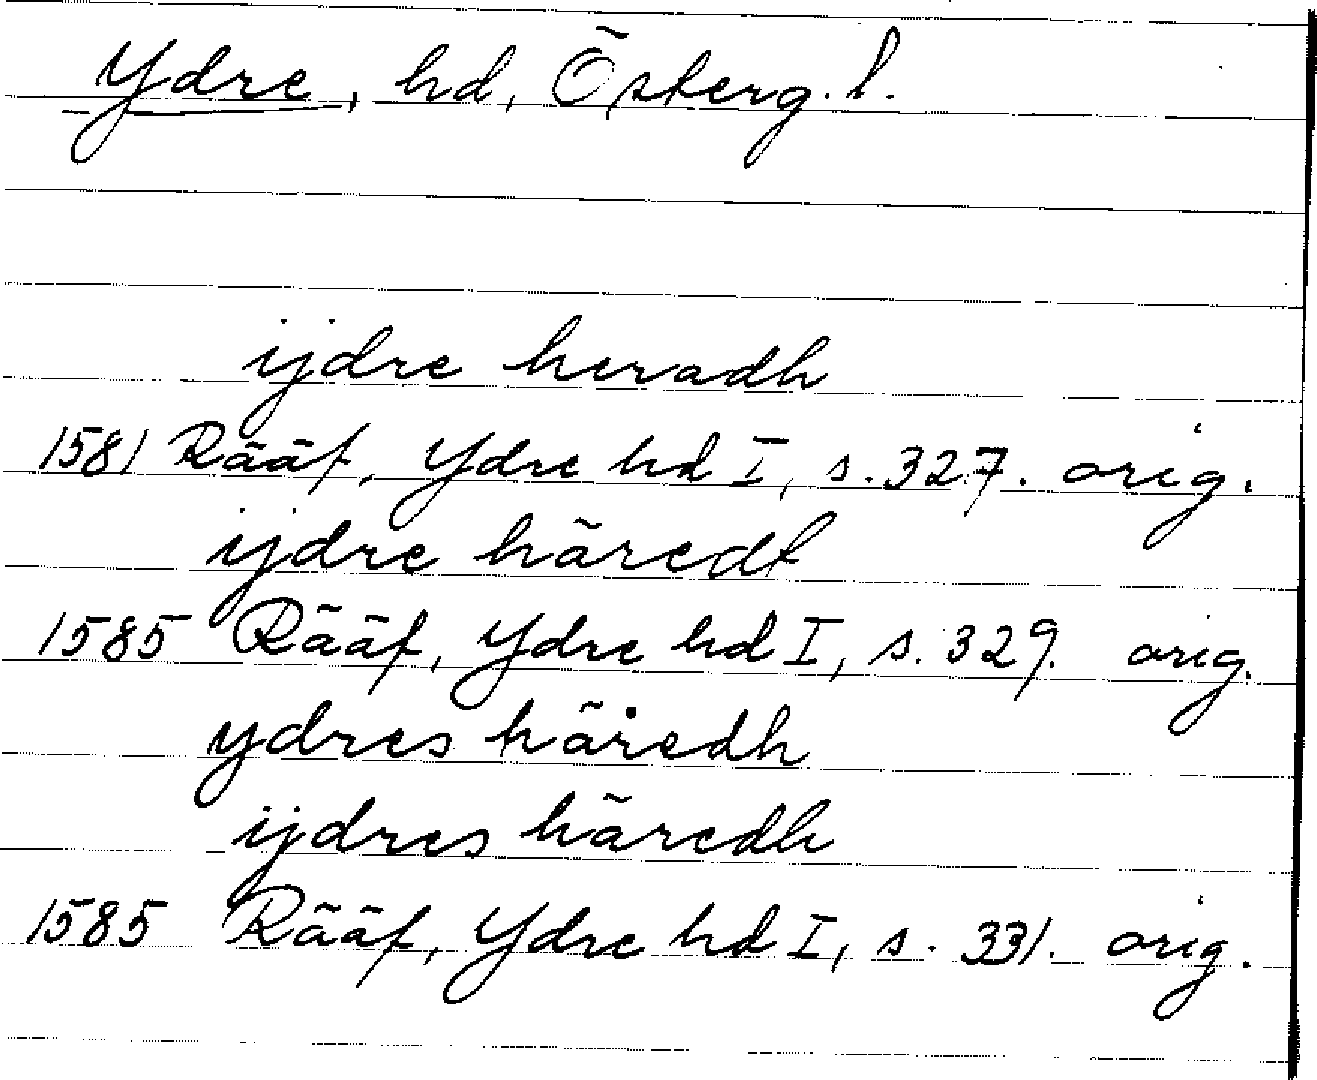 Ydre, hd, Österg. l.
ijdre heradh
1581 Rääf, Ydre hd I, s. 327. orig.
ijdre häredt
1585 Rääf, Ydre hd I, s. 329. orig.
ydres häredh
ijdres häredh
1585 Rääf, Ydre hd I, s. 331. orig.